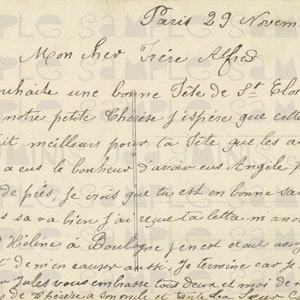 Paris 29 Novem
Mon cher Frère Alfred
ouhaite une bonne Fête de St Elo
notre petite Thérèse j'espère que cette
it meilleurs pour ta Fête que les a
a eus le bonheur d'avoir eus Angèle
de près, je crois que tu est en bonne sa
s sa va bien j'ai reçue ta lettre m'anon
d Hélène à
t de m'en causer aussi. Je termine car je
r Jules vous embrasse tous deux et moi de